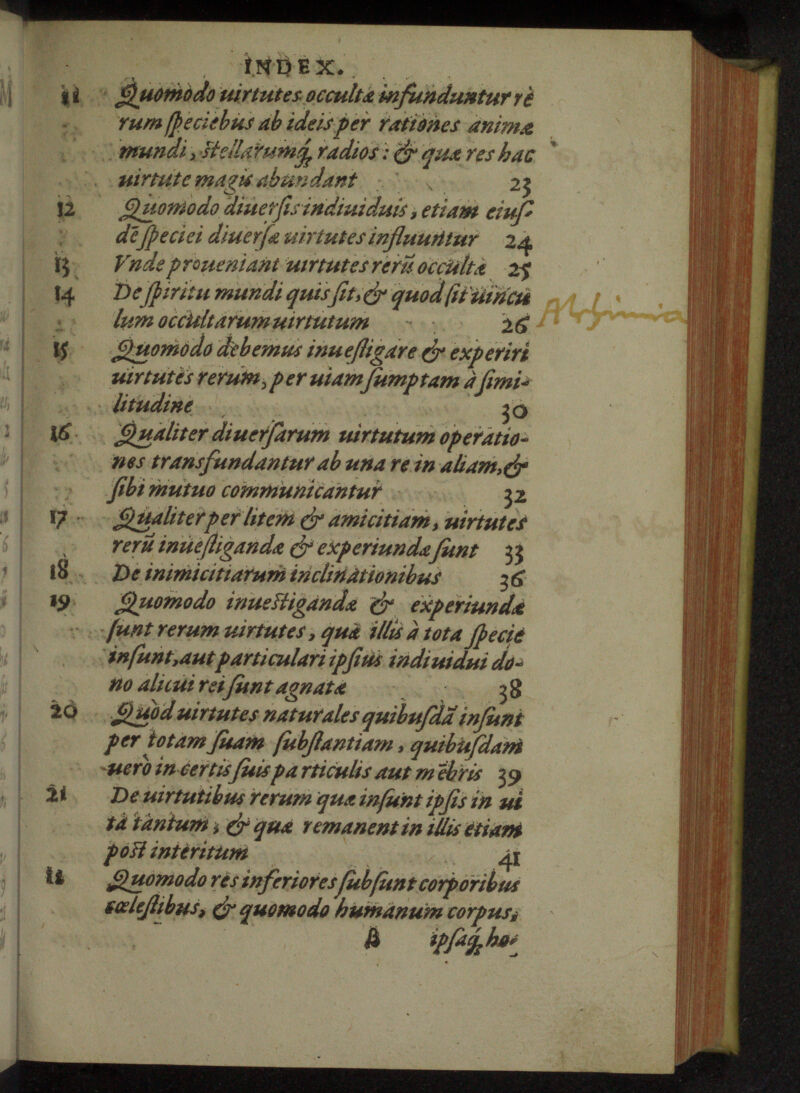 INDEX.
11 Quomodo uirtutes occultæ infunduntur re
rum speciebus ab ideis per rationes animæ
mundi, stellarumq; radios: & quæ res hac
uirtute magis abundant 23
12 Quomodo diuersis indiuiduis, etiam eius
dē speciei diuersæ uirtutes influuntur 24
13 Vnde proueniant uirtutes rerū occultæ 25
14 De spiritu mundi quis sit, & quod sit uincu
lum occultarum uirtutum 26
15 Quomodo debemus inuestigare & experiri
uirtutes rerum, per uiam sumptam à simi-
litudine 30
16 Qualiter diuersarum uirtutum operatio-
nes transfundantur ab una re in aliam, &
sibi mutuo communicantur 32
17 Qualiter per litem & amicitiam, uirtutes
rerū inuestigandæ & experiundæ sunt 33
18 De inimicitiarum inclinationibus 36
19 Quomodo inuestigandæ & experiundæ
sunt rerum uirtutes, quæ illis à tota specie
insunt, aut particulari ipsius indiuidui do-
no alicui rei sunt agnatæ 38
20 Quòd uirtutes naturales quibusdā insunt
per totam suam substantiam, quibusdam
uero in certis suis particulis aut mēbris 39
21 De uirtutibus rerum quæ insunt ipsis in ui
ta tantum, & quæ remanent in illis etiam
post interitum 41
22 Quomodo res inferiores subsunt corporibus
cœlestibus, & quomodo humanum corpus,
ipsaq; ho-